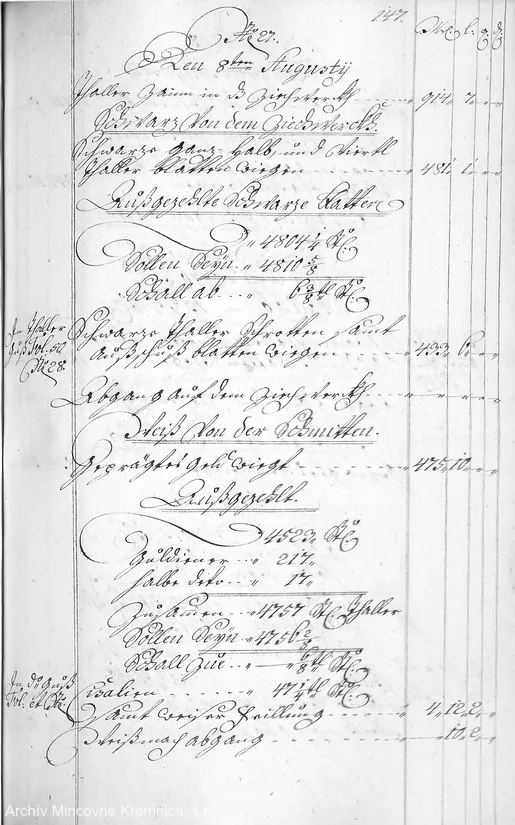 147.
No 27.
Den 8ten Augustij
Thaller Zainn in das Ziechwerckh 914 7
Schwarz Von dem Ziechwerckh.
Schwarze Ganz- Halb, und Viertl
Thaller blatten wiegen 481 1
Außgezehlte Schwarze Platten
4804 1/4 St:
Sollen Seyn 4810 5/8
Schall ab 6 3/8tl St:
In Thaller
Guß Fol: 50
No 28.
Schwarze Thaller Schrotten samt
Außschuß blatten wiegen 433 6
Abgang auf dem Ziechwerckh
Weiß Von der Schmitten.
Geprägtes Geld wiegt 475 10
Außgezehlt.
4523 St:
Guldiener 217
halbe deto 17
Zusamen 4757 St: Thaller
Sollen Seyn 4756 2/8
Schall Zue 6/8tl St:
In do Guß
Fol: et No:
Cisalien 47 St:
Samt weiser Feillung 4 12 2
Weißmach abgang 10 2
Archív Mincovne Kremnica, š.p.